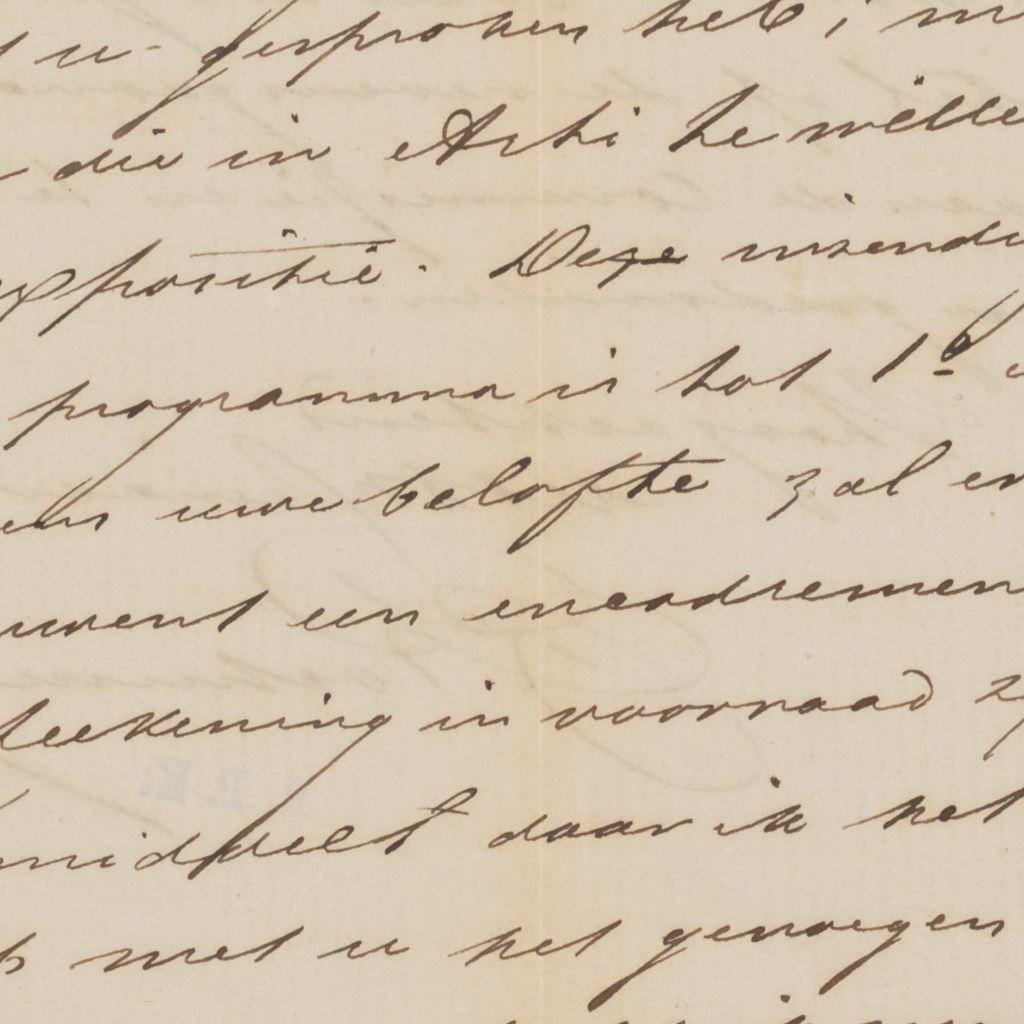 u gesproken heb; m
die in Arti te wille
xpositie. Deze inzendi
programma is tot 1e
ens uwe belofte zal er
uwent een encadremen
teekening in voorraad zy
middelt daar ik het
met u het genoegen